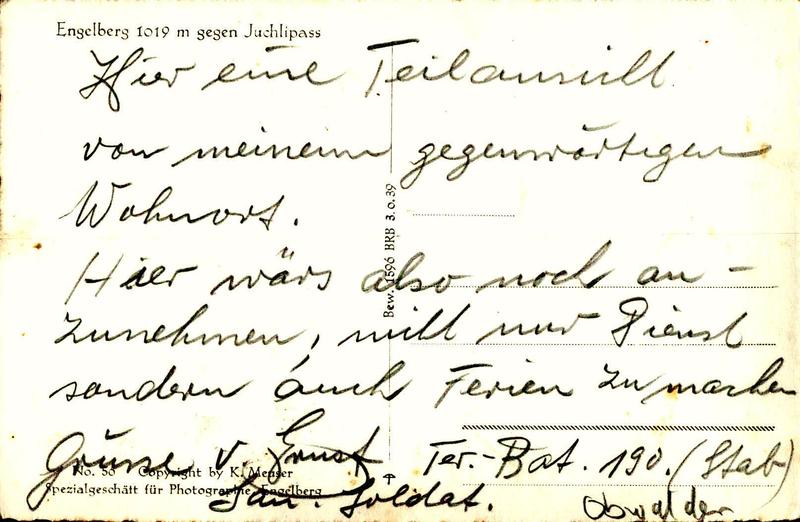 Engelberg 1019 m gegen Juchlipass
Hier eine Teilansicht
von meinem gegenwärtigen
Wohnort.
Hier wärs also noch an-
zunehmen, nicht nur Dienst
sondern auch Ferien zu machen
Grüsse v. Ernst
San. Soldat.
Ter.-Bat. 190. (Stab)
Obwalden
Bew. 1596 BRB 3.0.39
No. 55 Copyright by K. Meuser
Spezialgeschäft für Photographie Engelberg